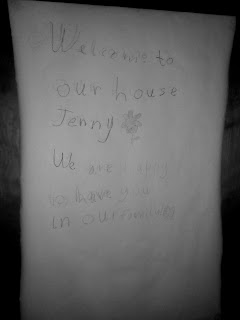 Welcome to
our house
Jenny
We are happy
to have you
in our